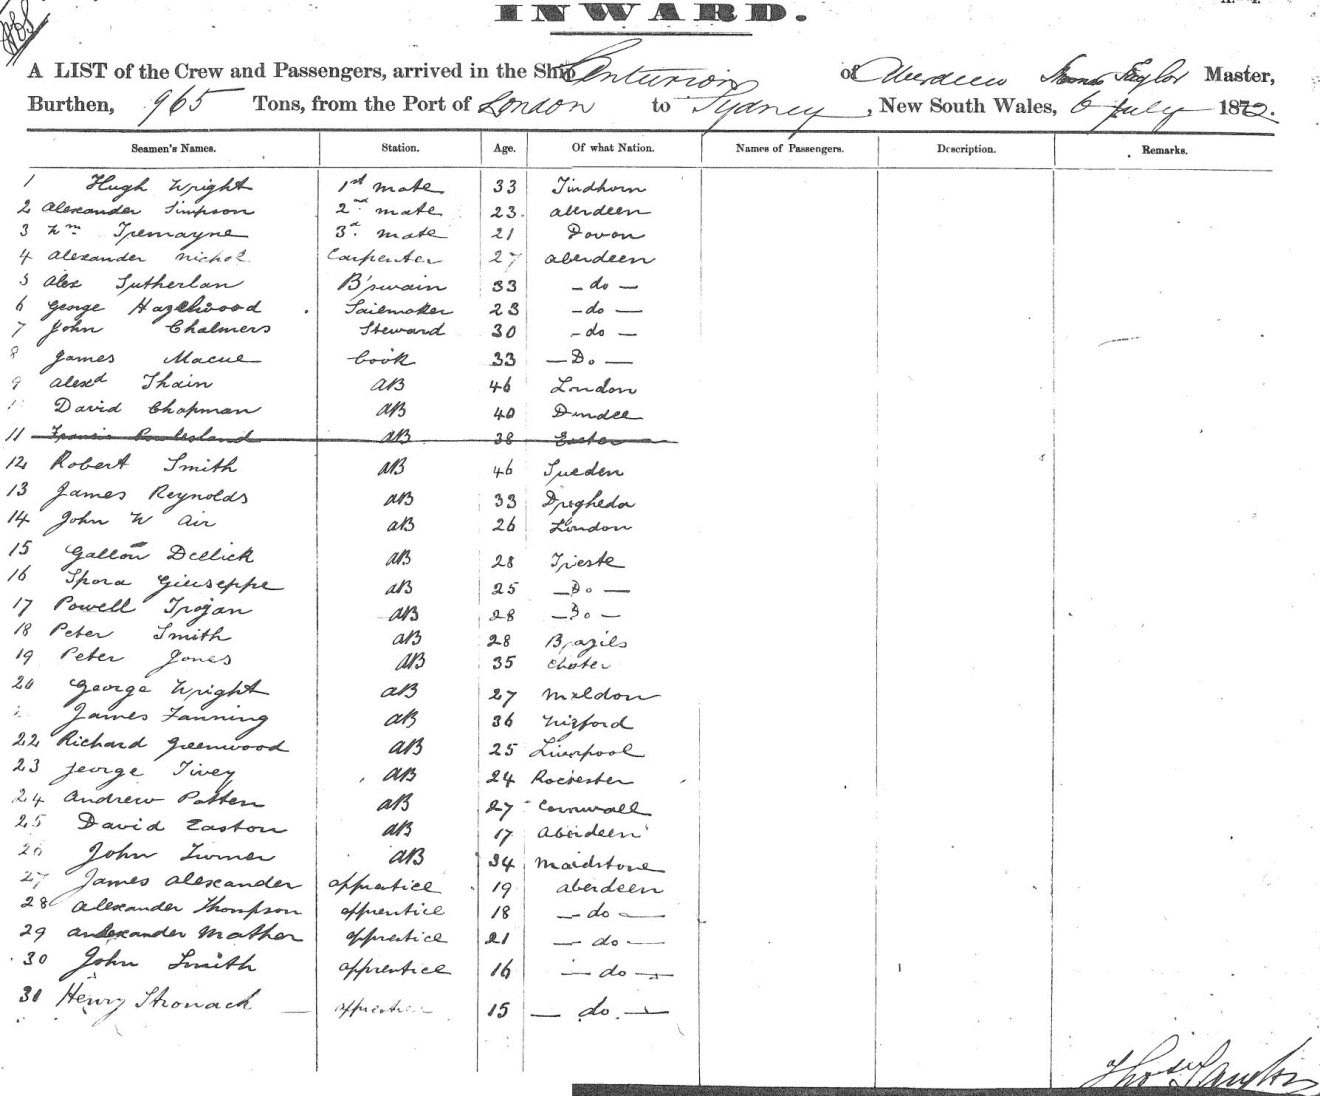 INWARD.
A LIST of the Crew and Passengers, arrived in the Ship Centurion of Aberdeen Thomas Taylor Master,
Burthen, 965 Tons, from the Port of London to Sydney, New South Wales, 6 July 1872.
Seamen's Names. Station. Age. Of what Nation. Names of Passengers. Description. Remarks.
1 Hugh Wright 1st mate 33 Findhorn
2 Alexander Simpson 2nd mate 23 aberdeen
3 Wm Tremayne 3d mate 21 Devon
4 Alexander Nichol Carpenter 27 aberdeen
5 Alex Sutherlan B'swain 33 - do -
6 George Hazelwood Sailmaker 23 - do -
7 John Chalmers Steward 30 - do -
8 James Macue Cook 33 - Do -
9 Alexd Thain AB 46 London
David Chapman AB 40 Dundee
11 Francis AB 38 Exeter
12 Robert Smith AB 46 Sweden
13 James Reynolds AB 33 Drogheda
14 John W Air AB 26 London
15 Gallon Dellick AB 28 Trieste
16 Spora Giuseppe AB 25 - Do -
17 Powell Trojan AB 28 - Do -
18 Peter Smith AB 28 Brazils
19 Peter Jones AB 35 Chester
20 George Wright AB 27 Maldon
James Fanning AB 36 Wexford
22 Richard Greenwood AB 25 Liverpool
23 George Tivey AB 24 Rochester
24 Andrew Patten AB 27 Cornwall
25 David Easton AB 17 Aberdeen
26 John Turner AB 34 Maidstone
27 James Alexander apprentice 19 aberdeen
28 Alexander Thompson apprentice 18 - do -
29 Alexander Mather apprentice 21 - do -
30 John Smith apprentice 16 - do -
31 Henry Stronach apprentice 15 - do -
Thos Taylor